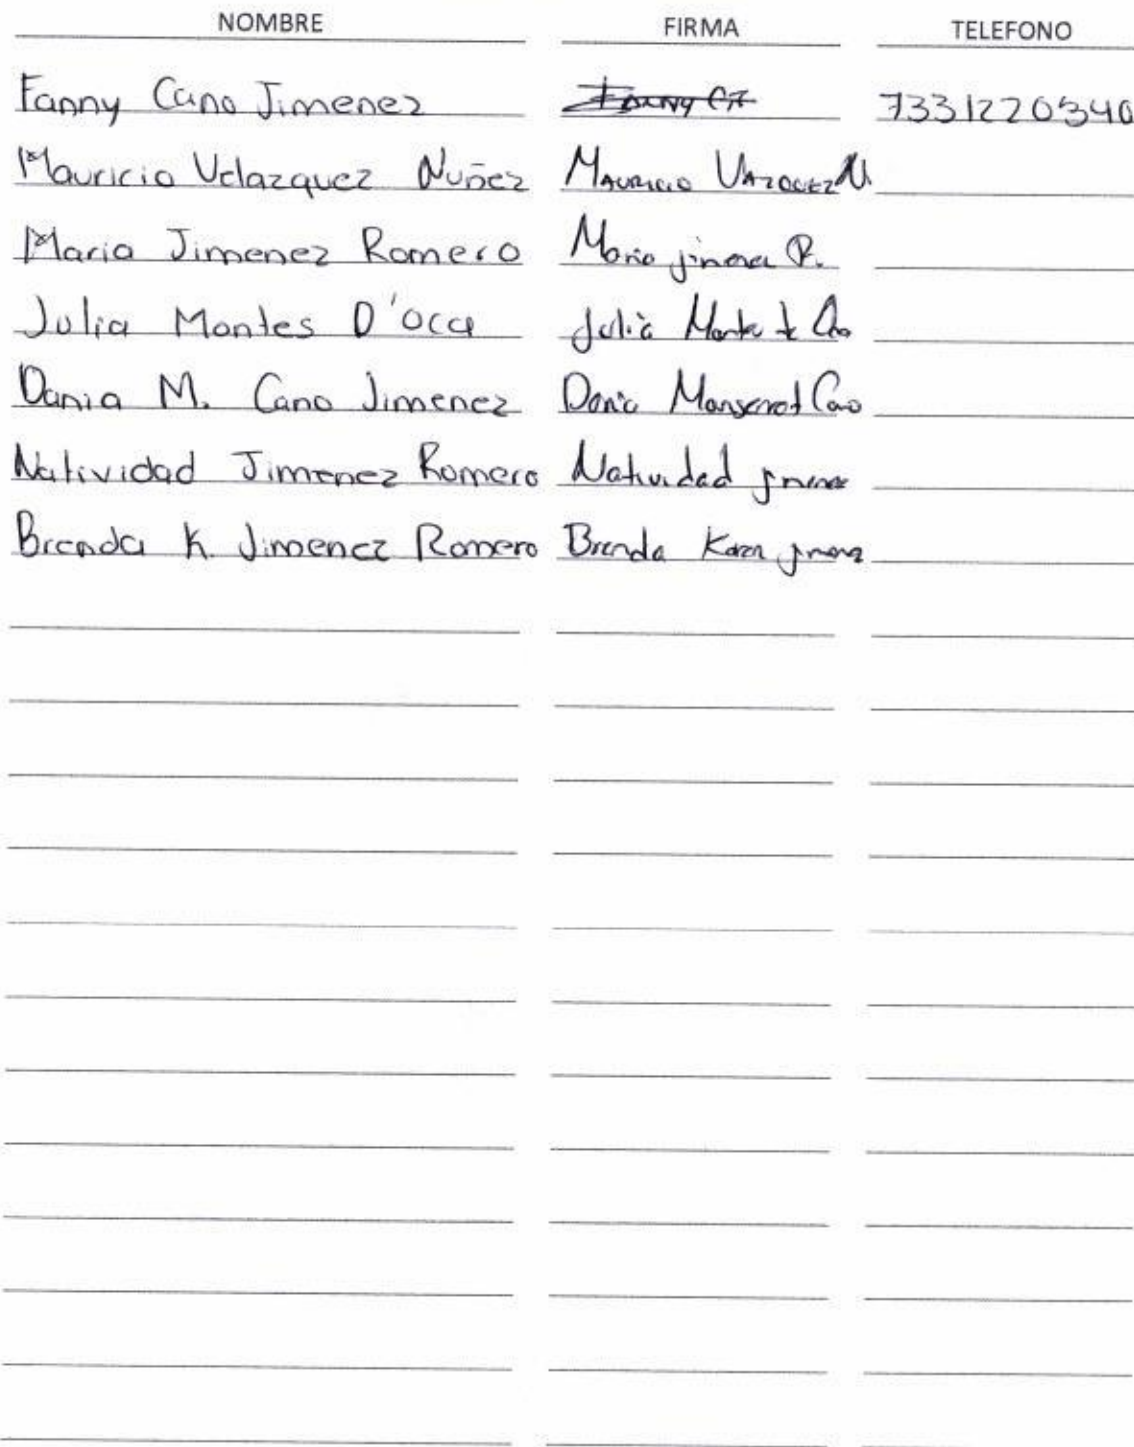 NOMBRE FIRMA TELEFONO
Fanny Cano Jimenez Fanny CJ 7331220340
Mauricio Velazquez Nuñez Mauricio Vazquez N.
Maria Jimenez Romero Maria jimenez R.
Julia Montes D'Oca Julia Monte de Oca
Dania M. Cano Jimenez Dania Monserrat Cano
Natividad Jimenez Romero Natividad jimenez
Brenda K. Jimenez Romero Brenda Karen jimenez